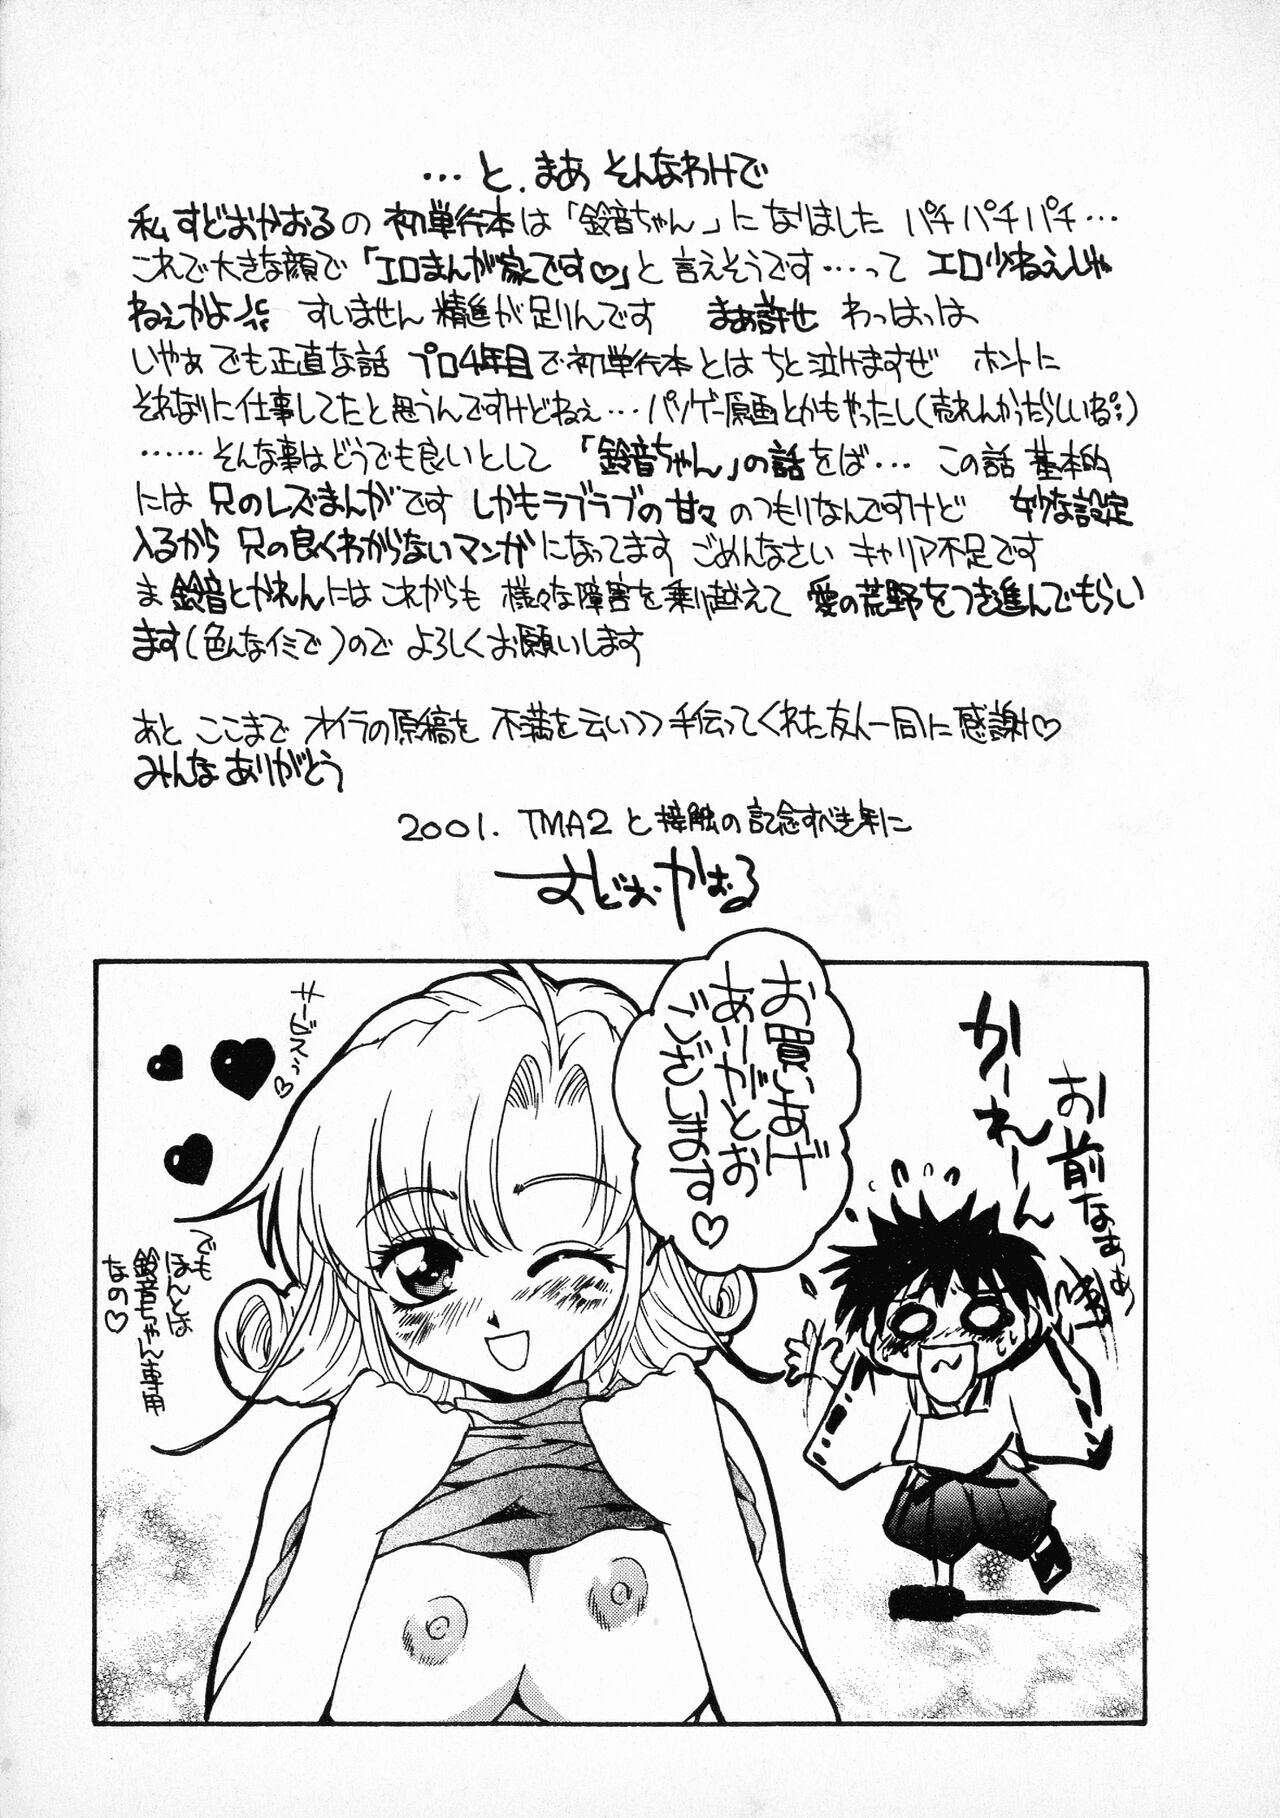 …と、まあ そんなわけで
私 すどおかおるの 初単行本は「鈴音ちゃん」になりました パチパチパチ…
これで大きな顔で「エロまんが家です♡」と言えそうです…って エロ少ねぇじゃ
ねぇかよ すいません精進が足りんです まぁ許せ わっはっは
いやぁでも正直な話 プロ4年目で初単行本とは ちと泣けますぜ ホントに
それなりに仕事してたと思うんですけどねぇ…パソゲー原画とかもやったし(売れんかったらしいね)
……そんな事はどうでも良いとして 「鈴音ちゃん」の話をば… この話 基本的
には 兄のレズまんがです しかもラブラブの甘々のつもりなんですけど 妙な設定
入るから 兄の良くわからないマンガになってます ごめんなさい キャリア不足です
ま 鈴音とかれんにはこれからも 様々な障害を乗り越えて 愛の荒野をつき進んでもらい
ます(色んなイミで)ので よろしくお願いします
あと ここまで オイラの原稿を 不満を云いつつ手伝ってくれた友人一同に感謝♡
みんなありがとう
2001. TMA2 と接触の記念すべき年に
すどお・かおる
かーれーん
お前なぁぁぁ
お買いあげ
あーがとお
ございます♡
サービスっ♡
でも
ほんとは
鈴音ちゃん専用
なの♡